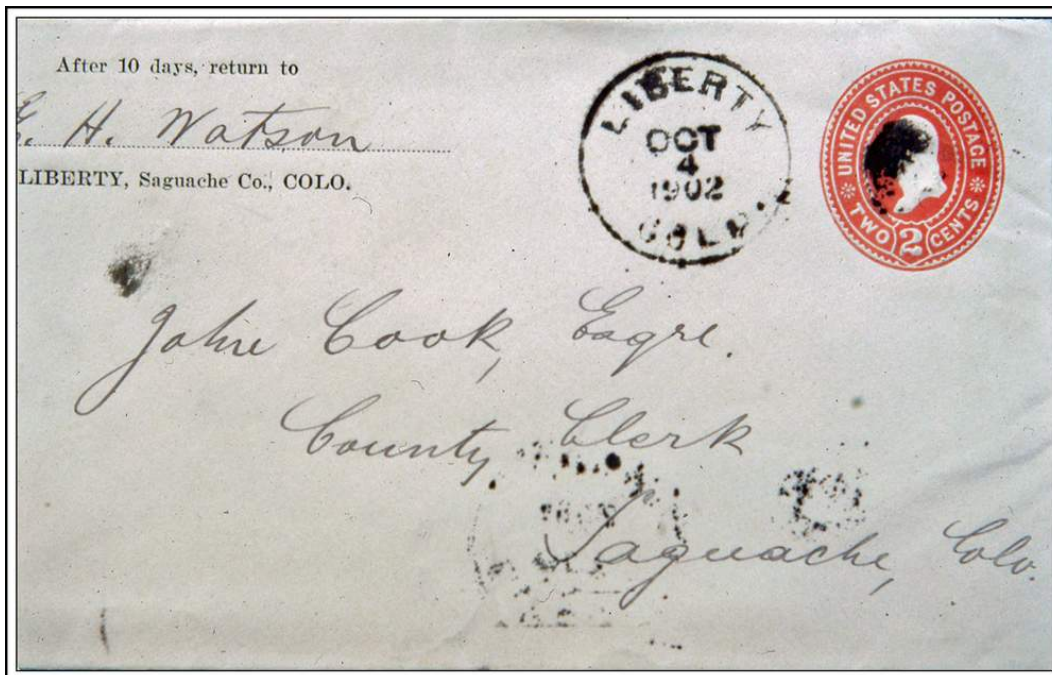 After 10 days, return to
H. Watson
LIBERTY, Saguache Co., COLO.
LIBERTY
OCT
4
1902
COLO.
UNITED STATES POSTAGE
TWO 2 CENTS
John Cook, Esqre.
County Clerk
Saguache, Colo.